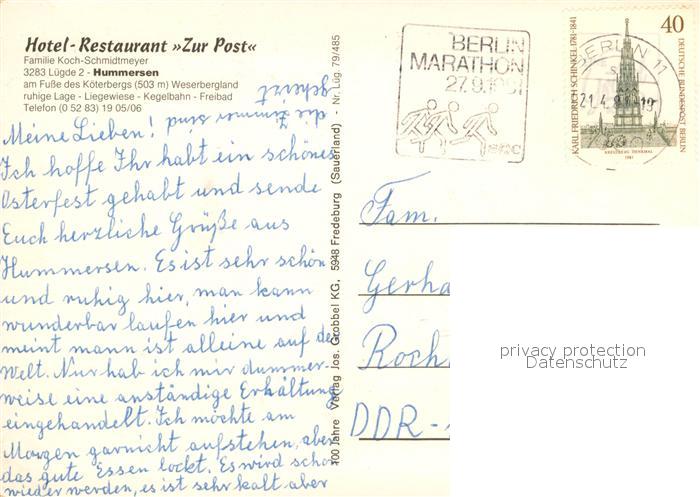 Hotel-Restaurant »Zur Post«
Familie Koch-Schmidtmeyer
3283 Lügde 2 - Hummersen
am Fuße des Köterbergs (503 m) Weserbergland
ruhige Lage - Liegewiese - Kegelbahn - Freibad
Telefon (0 52 83) 19 05/06
Meine Lieben!
Ich hoffe Ihr habt ein schönes
Osterfest gehabt und sende
Euch herzliche Grüße aus
Hummersen. Es ist sehr schön
und ruhig hier, man kann
wunderbar laufen hier und
meint mann ist alleine auf der
Welt. Nur hab ich mir dummer-
weise eine anständige Erhältung
eingehandelt. Ich möchte am
Morgen garnicht aufstehen, aber
das gute Essen lockt. Es wird schon
wieder werden, es ist sehr kalt aber
die Zimmer sind
geheizt
100 Jahre Verlag Jos. Grobbel KG, 5948 Fredeburg (Sauerland) - Nr. Lüg. 79/485
BERLIN
MARATHON
27.9.1981
SCC
BERLIN 11
21.4.81-19
40
DEUTSCHE BUNDESPOST BERLIN
KARL FRIEDRICH SCHINKEL 1781-1841
KREUZBERG DENKMAL
1981
Fam.
Gerha
Roch
DDR-
privacy protection
Datenschutz